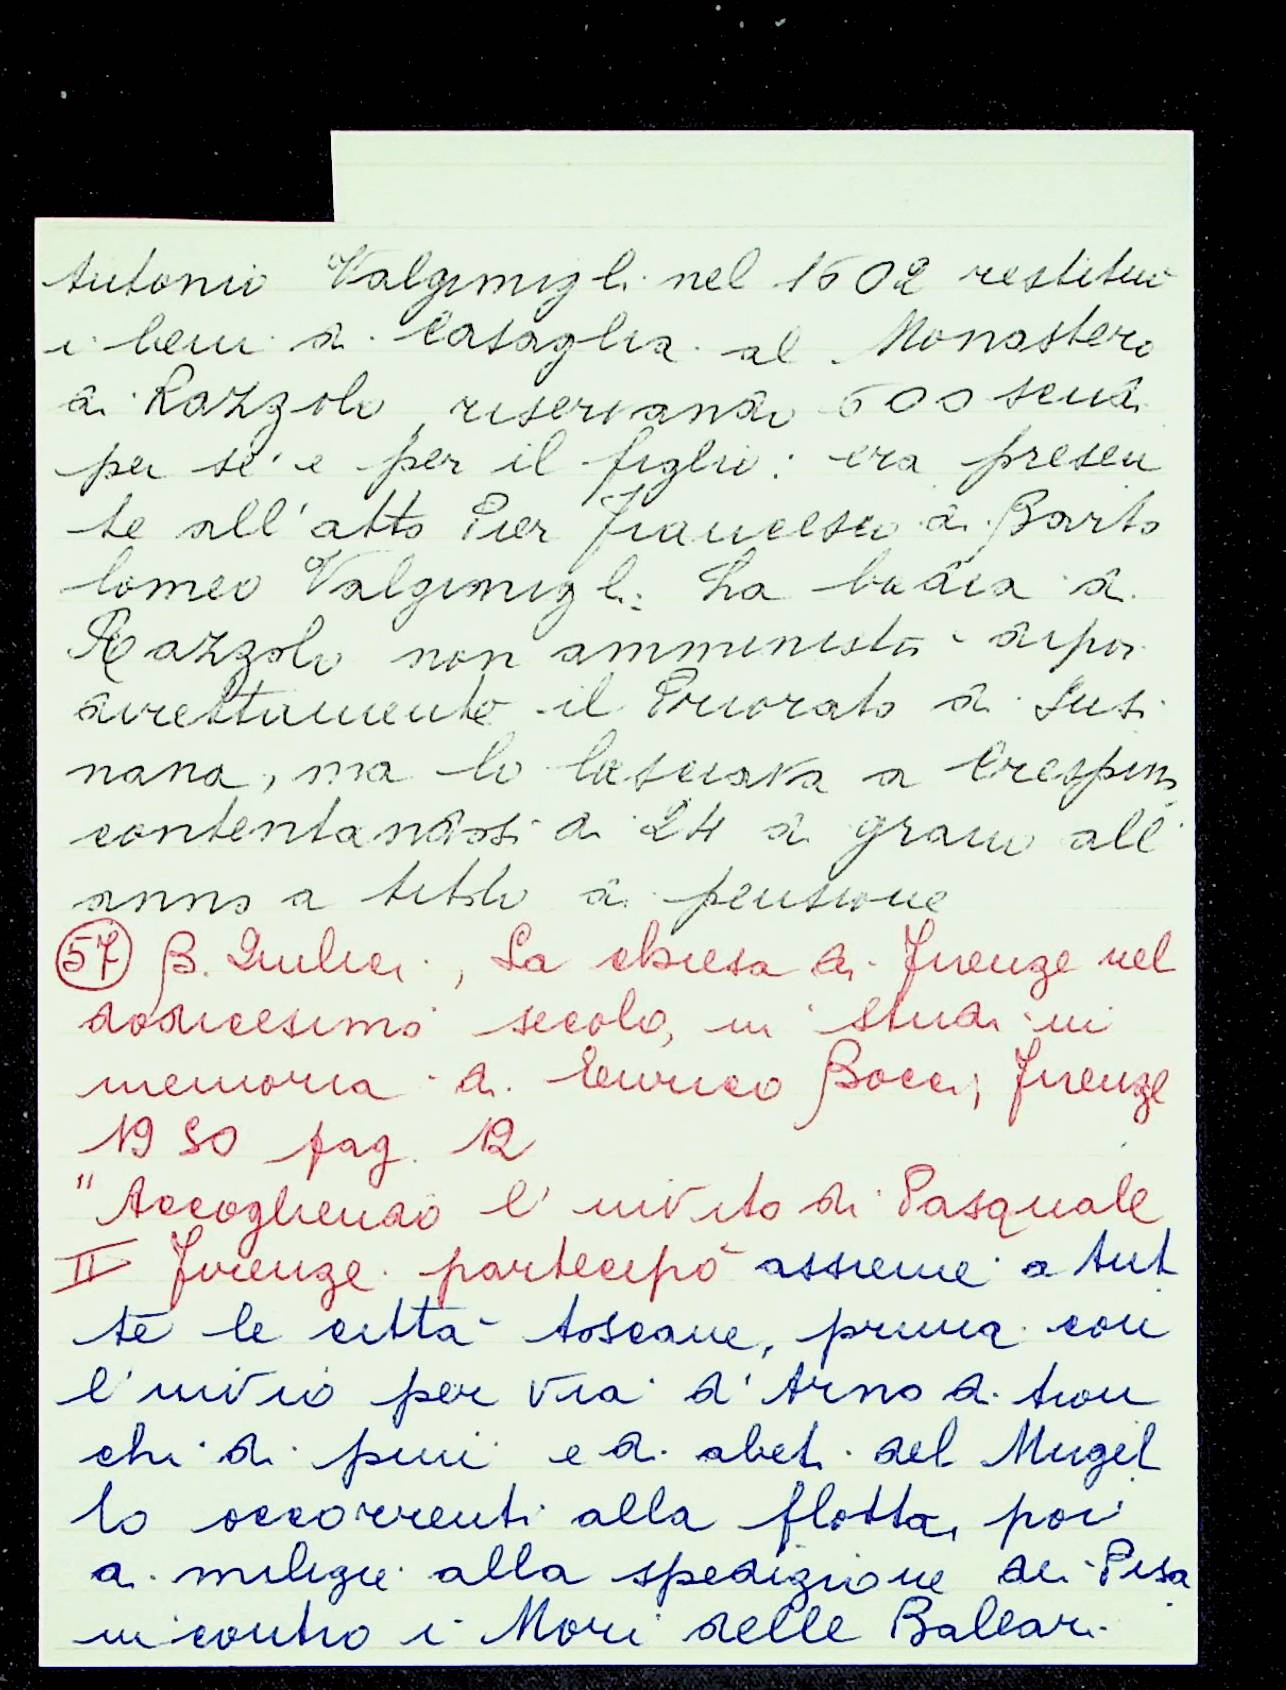 Antonio Valgimigli nel 1502 restituì
i beni di Casaglia al Monastero
di Razzolo, riservando 500 scudi
per sé e per il figlio: era presen
te all'atto Pier Francesco di Barto
lomeo Valgimigli. La badia di
Razzolo non amministrò dipoi
direttamente il Priorato di Susi
nana, ma lo lasciava a Crespino
contentandosi di 24 di grano all'
anno a titolo di pensione
57 B. Quilici, La chiesa di Firenze nel
dodicesimo secolo, in studi in
memoria di Enrico Bocci, Firenze
1950 pag. 12
"Accogliendo l'invito di Pasquale
II Firenze partecipò assieme a tut
te le città toscane, prima con
l'invio per via d'Arno di tron
chi di pini e di abeti del Mugel
lo occorrenti alla flotta, poi
di milizie alla spedizione dei Pisa
ni contro i Mori delle Baleari